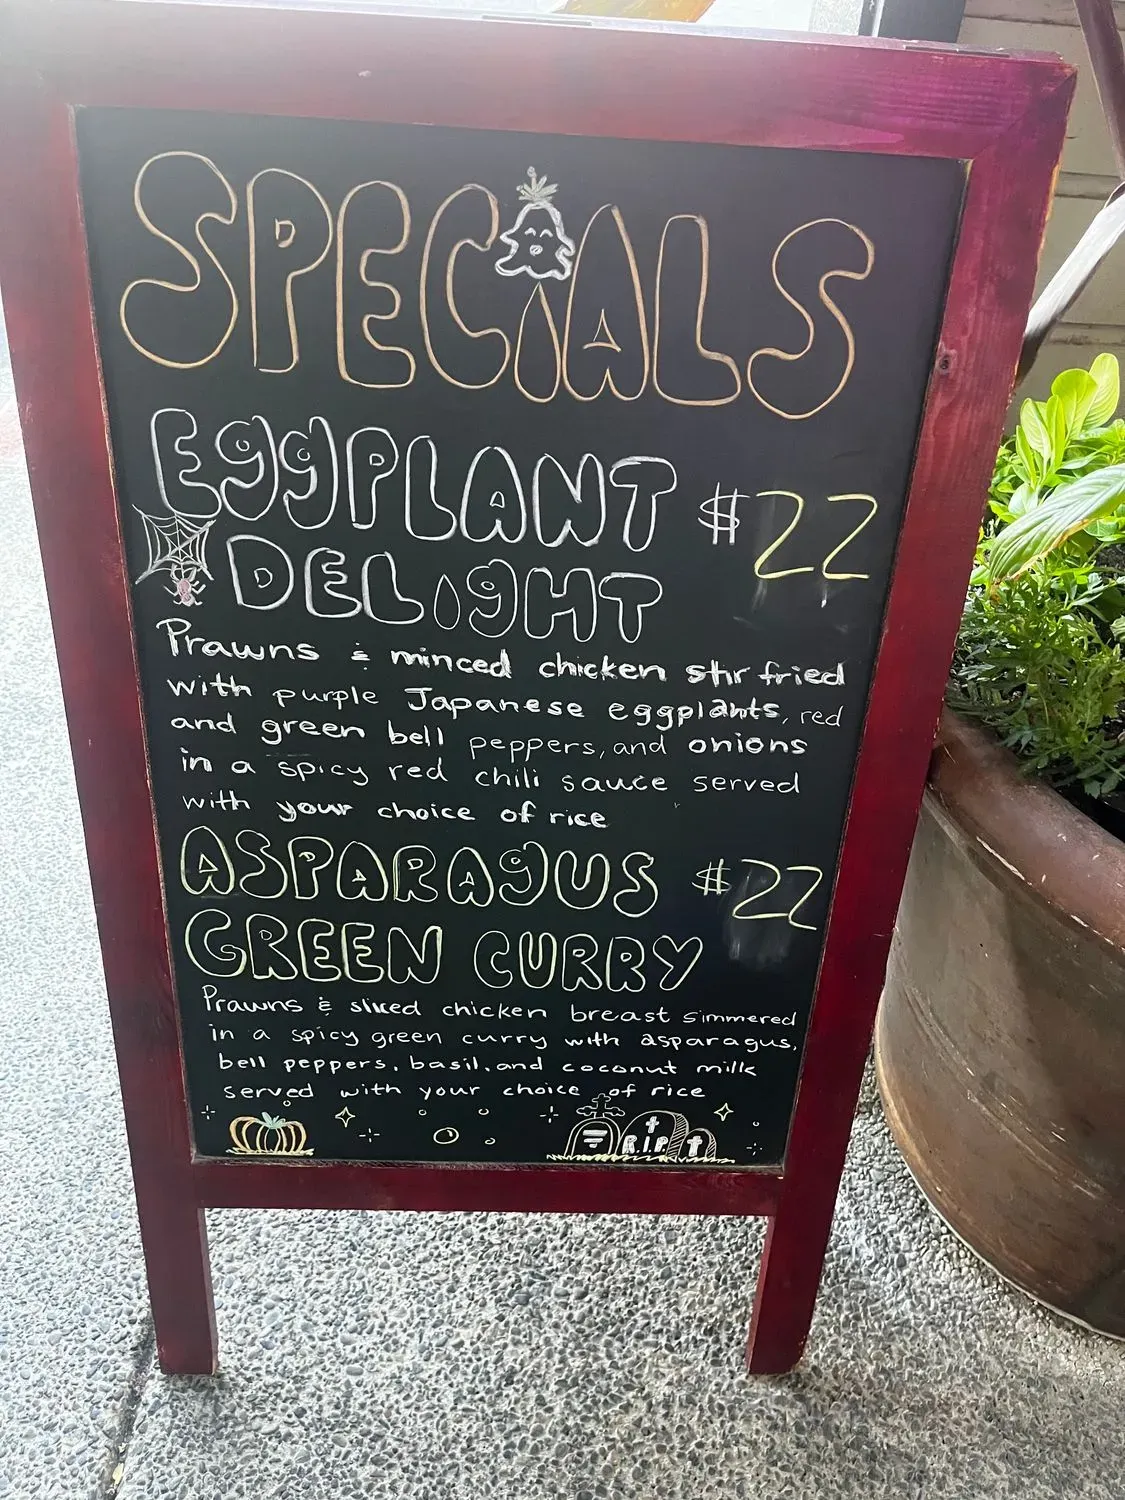 SPECiALS
EggPLANT $22
DELigHT
Prawns & minced chicken stir fried
with purple Japanese eggplants, red
and green bell peppers, and onions
in a spicy red chili sauce served
with your choice of rice
ASPARAgUS $22
GREEN CURRY
Prawns & sliced chicken breast simmered
in a spicy green curry with asparagus,
bell peppers, basil, and coconut milk
served with your choice of rice
R.I.P.